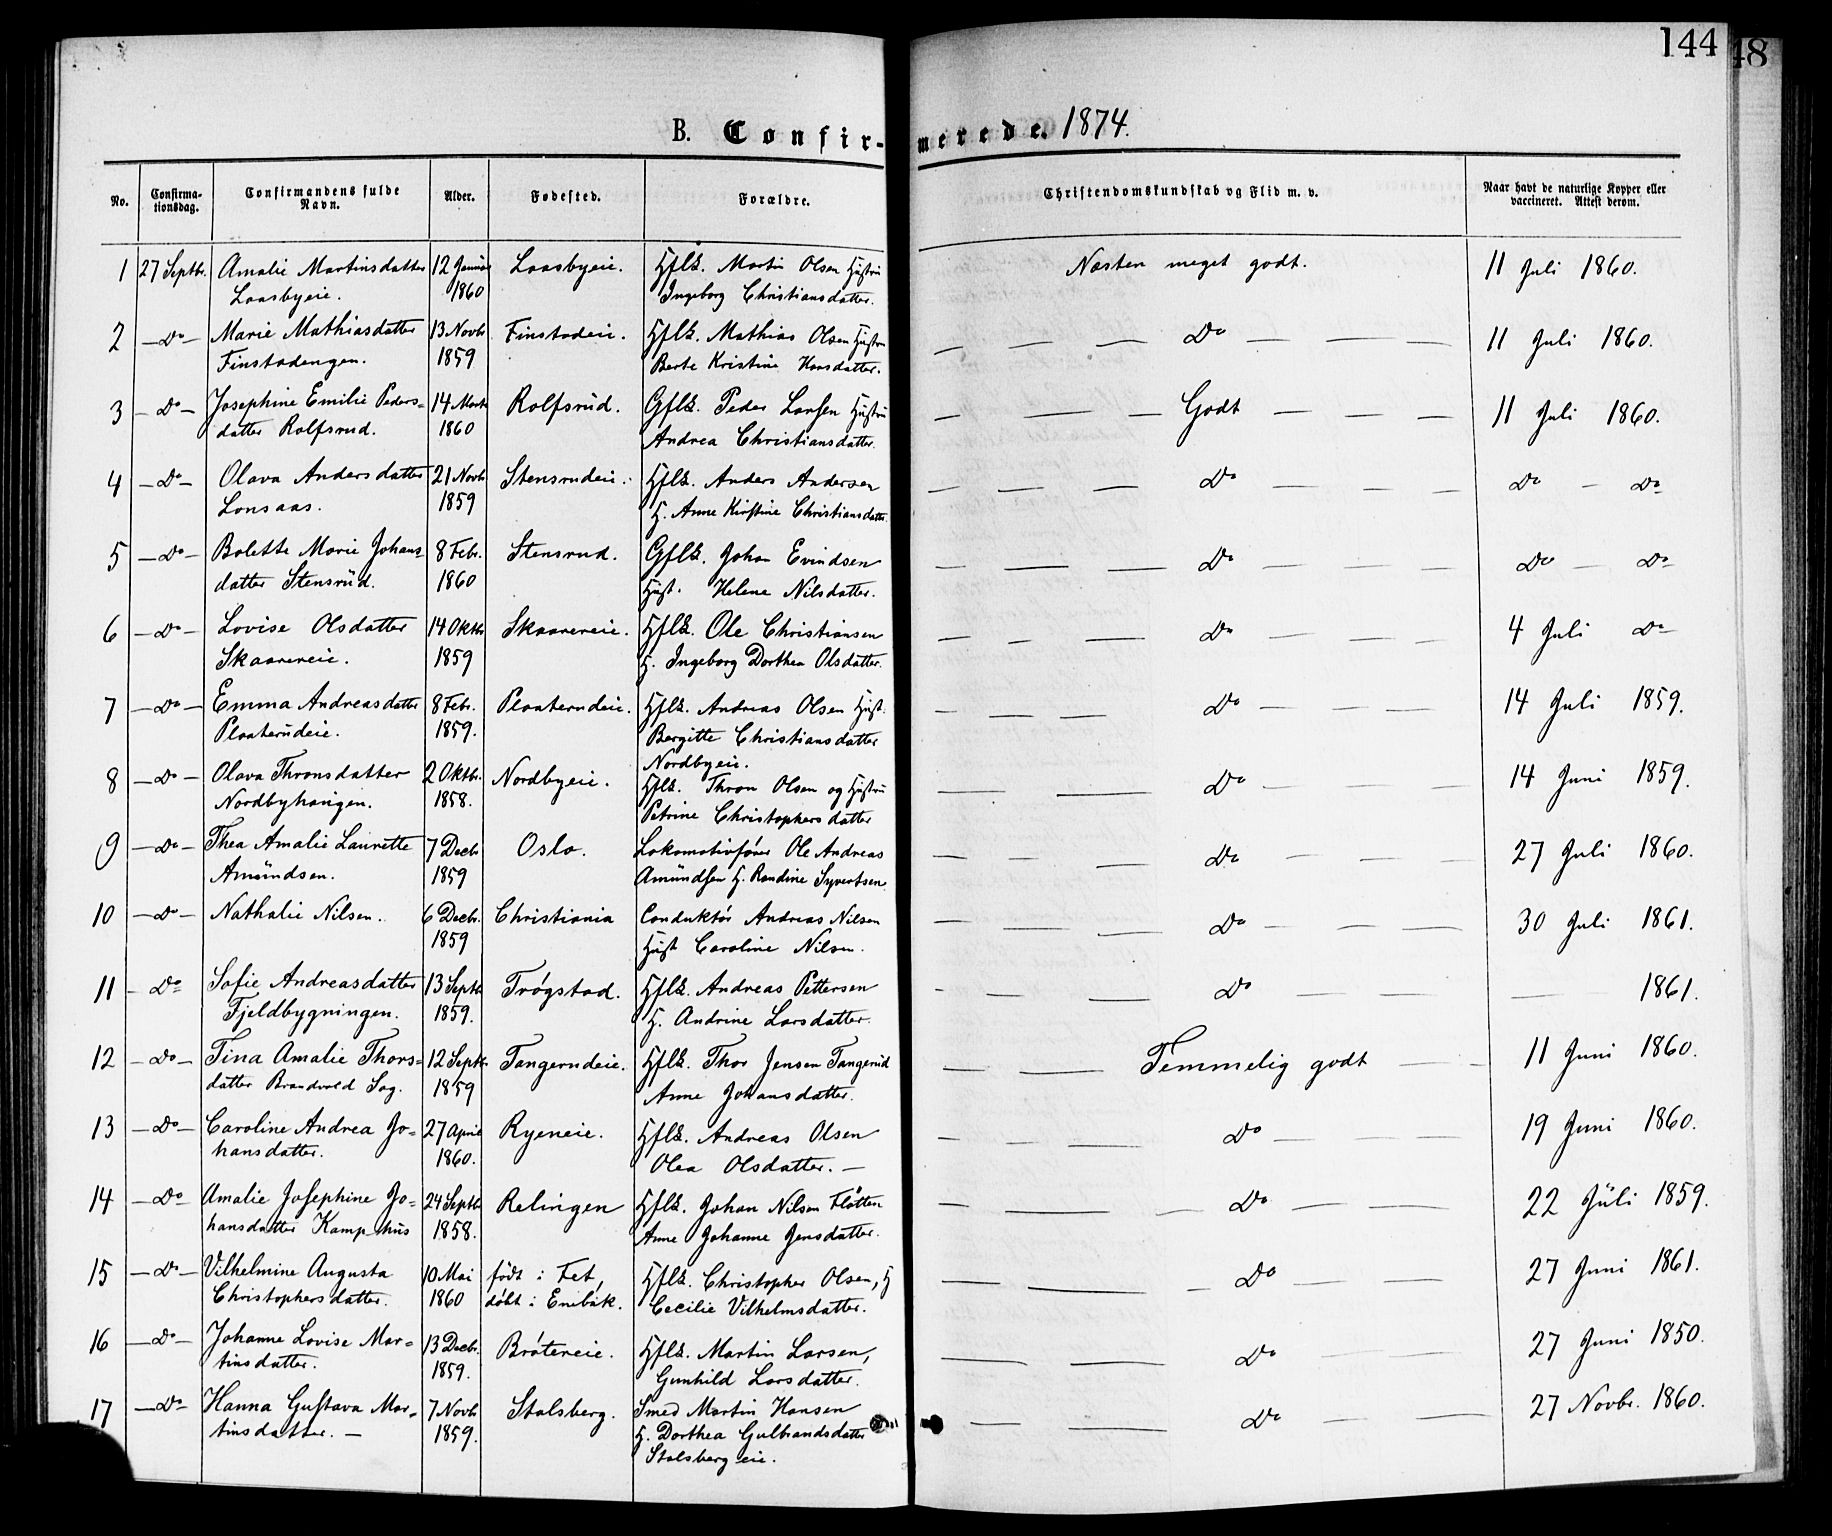 144
48
B. Confir-
merede. 1874.
No. Confirma-tionsdag. Confirmandens fulde Navn. Alder. Fødested. Forældre. Christendomskundskab og Flid m. v. Naar havt de naturlige Kopper eller vaccineret. Attest derom.
1 27 Septbr. Amalie Martinsdatter 12 Januar Laasbyeie. Hflk. Martin Olsen Hustru Næsten meget godt. 11 Juli 1860.
Laasbyeie. 1860 Ingeborg Christiansdatter.
2 — Do — Marie Mathiasdatter 13 Novbr Finstadeie. Hflk. Mathias Olsen Hustru — — — Do — — — 11 Juli 1860.
Finstadengen. 1859 Berte Kristine Hansdatter.
3 — Do — Josephine Emilie Peders= 14 Marts Rolfsrud. Gflk. Peder Larsen Hustru — — — Godt — — — 11 Juli 1860.
datter Rolfsrud. 1860 Andrea Christiansdatter.
4 — Do — Olava Andersdatter 21 Novbr Stensrudeie. Hflk. Anders Andersen — — — Do — — — Do — Do
Lonsaas. 1859 H. Anne Kirstine Christiansdatter
5 — Do — Bolette Marie Johans= 8 Febr. Stensrud. Gflk. Johan Evindsen — — — Do — — — Do — Do
datter Stensrud. 1860 Hust. Helene Nilsdatter.
6 — Do — Lovise Olsdatter 14 Oktbr Skaarereie. Hflk. Ole Christiansen — — — Do — — — 4 Juli Do
Skaarereie. 1859 H. Ingeborg Dorthea Olsdatter.
7 — Do — Emma Andreasdatter 8 Febr. Plaaterudeie. Hflk. Andreas Olsen Hust. — — — Do — — — 14 Juli 1859.
Plaaterudeie. 1859. Bergitte Christiansdatter
Nordbyeie.
8 — Do — Olava Thronsdatter 2 Oktbr. Nordbyeie. Hflk. Thron Olsen og Hustru — — Do — — — 14 Juni 1859.
Nordbyhaugen. 1858. Petrine Christophersdatter
9 — Do — Thea Amalie Laurette 7 Decbr Oslo. Lokomotivfører Ole Andreas — — — Do — — — 27 Juli 1860.
Amundsen. 1859 Amundsen H. Randine Syvertsen.
10 — Do — Nathalie Nilsen. 6 Decbr. Christiania Conduktør Andreas Nilsen — — — Do — — — 30 Juli 1861.
1859 Hust Caroline Nilsen.
11 — Do Sofie Andreasdatter 13 Septbr Trøgstad. Hflk. Andreas Pettersen — — — Do — — — — 1861.
Fjeldbygningen. 1859. H. Andrine Larsdatter.
12 — Do — Tina Amalie Thors= 12 Septbr. Tangerudeie. Hflk. Thor Jensen Tangerud — — Temmelig godt — — 11 Juni 1860.
datter Brandvold Sag. 1859 Anne Johansdatter.
13 — Do — Caroline Andrea Jo= 27 April Ryeneie. Hflk. Andreas Olsen — — — Do — — — 19 Juni 1860.
hansdatter. 1860. Olea Olsdatter. —
14 — Do Amalie Josephine Jo= 24 Septbr Relingen Hflk. Johan Nilsen Fløtten — — — Do — — 22 Juli 1859.
hansdatter Kamphus 1858. Anne Johanne Jensdatter.
15 — Do — Vilhelmine Augusta 10 Mai født i Fet, Hflk. Christopher Olsen, H — — — Do — — 27 Juni 1861.
Christophersdatter. 1860 døbt i Enebak. Cecilie Vilhelmsdatter.
16 — Do — Johanne Lovise Mar= 13 Decbr. Bråtereie. Hflk. Martin Larsen, — — — Do — — 27 Juni 1850.
tinsdatter. 1859. Gunhild Larsdatter.
17 — Do Hanna Gustava Mar= 7 Novbr Stalsberg. Smed Martin Hansen — — Do — — 27 Novbr. 1860.
tinsdatter. — 1859. H. Dorthea Gulbrandsdatter
Stalsberg eie.